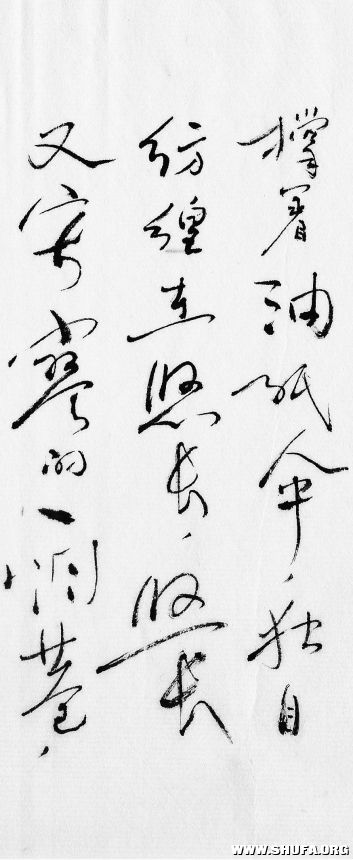 撑着油纸伞，独自
彷徨在悠长，悠长
又寂寥的一個雨巷，
WWW.SHUFA.ORG